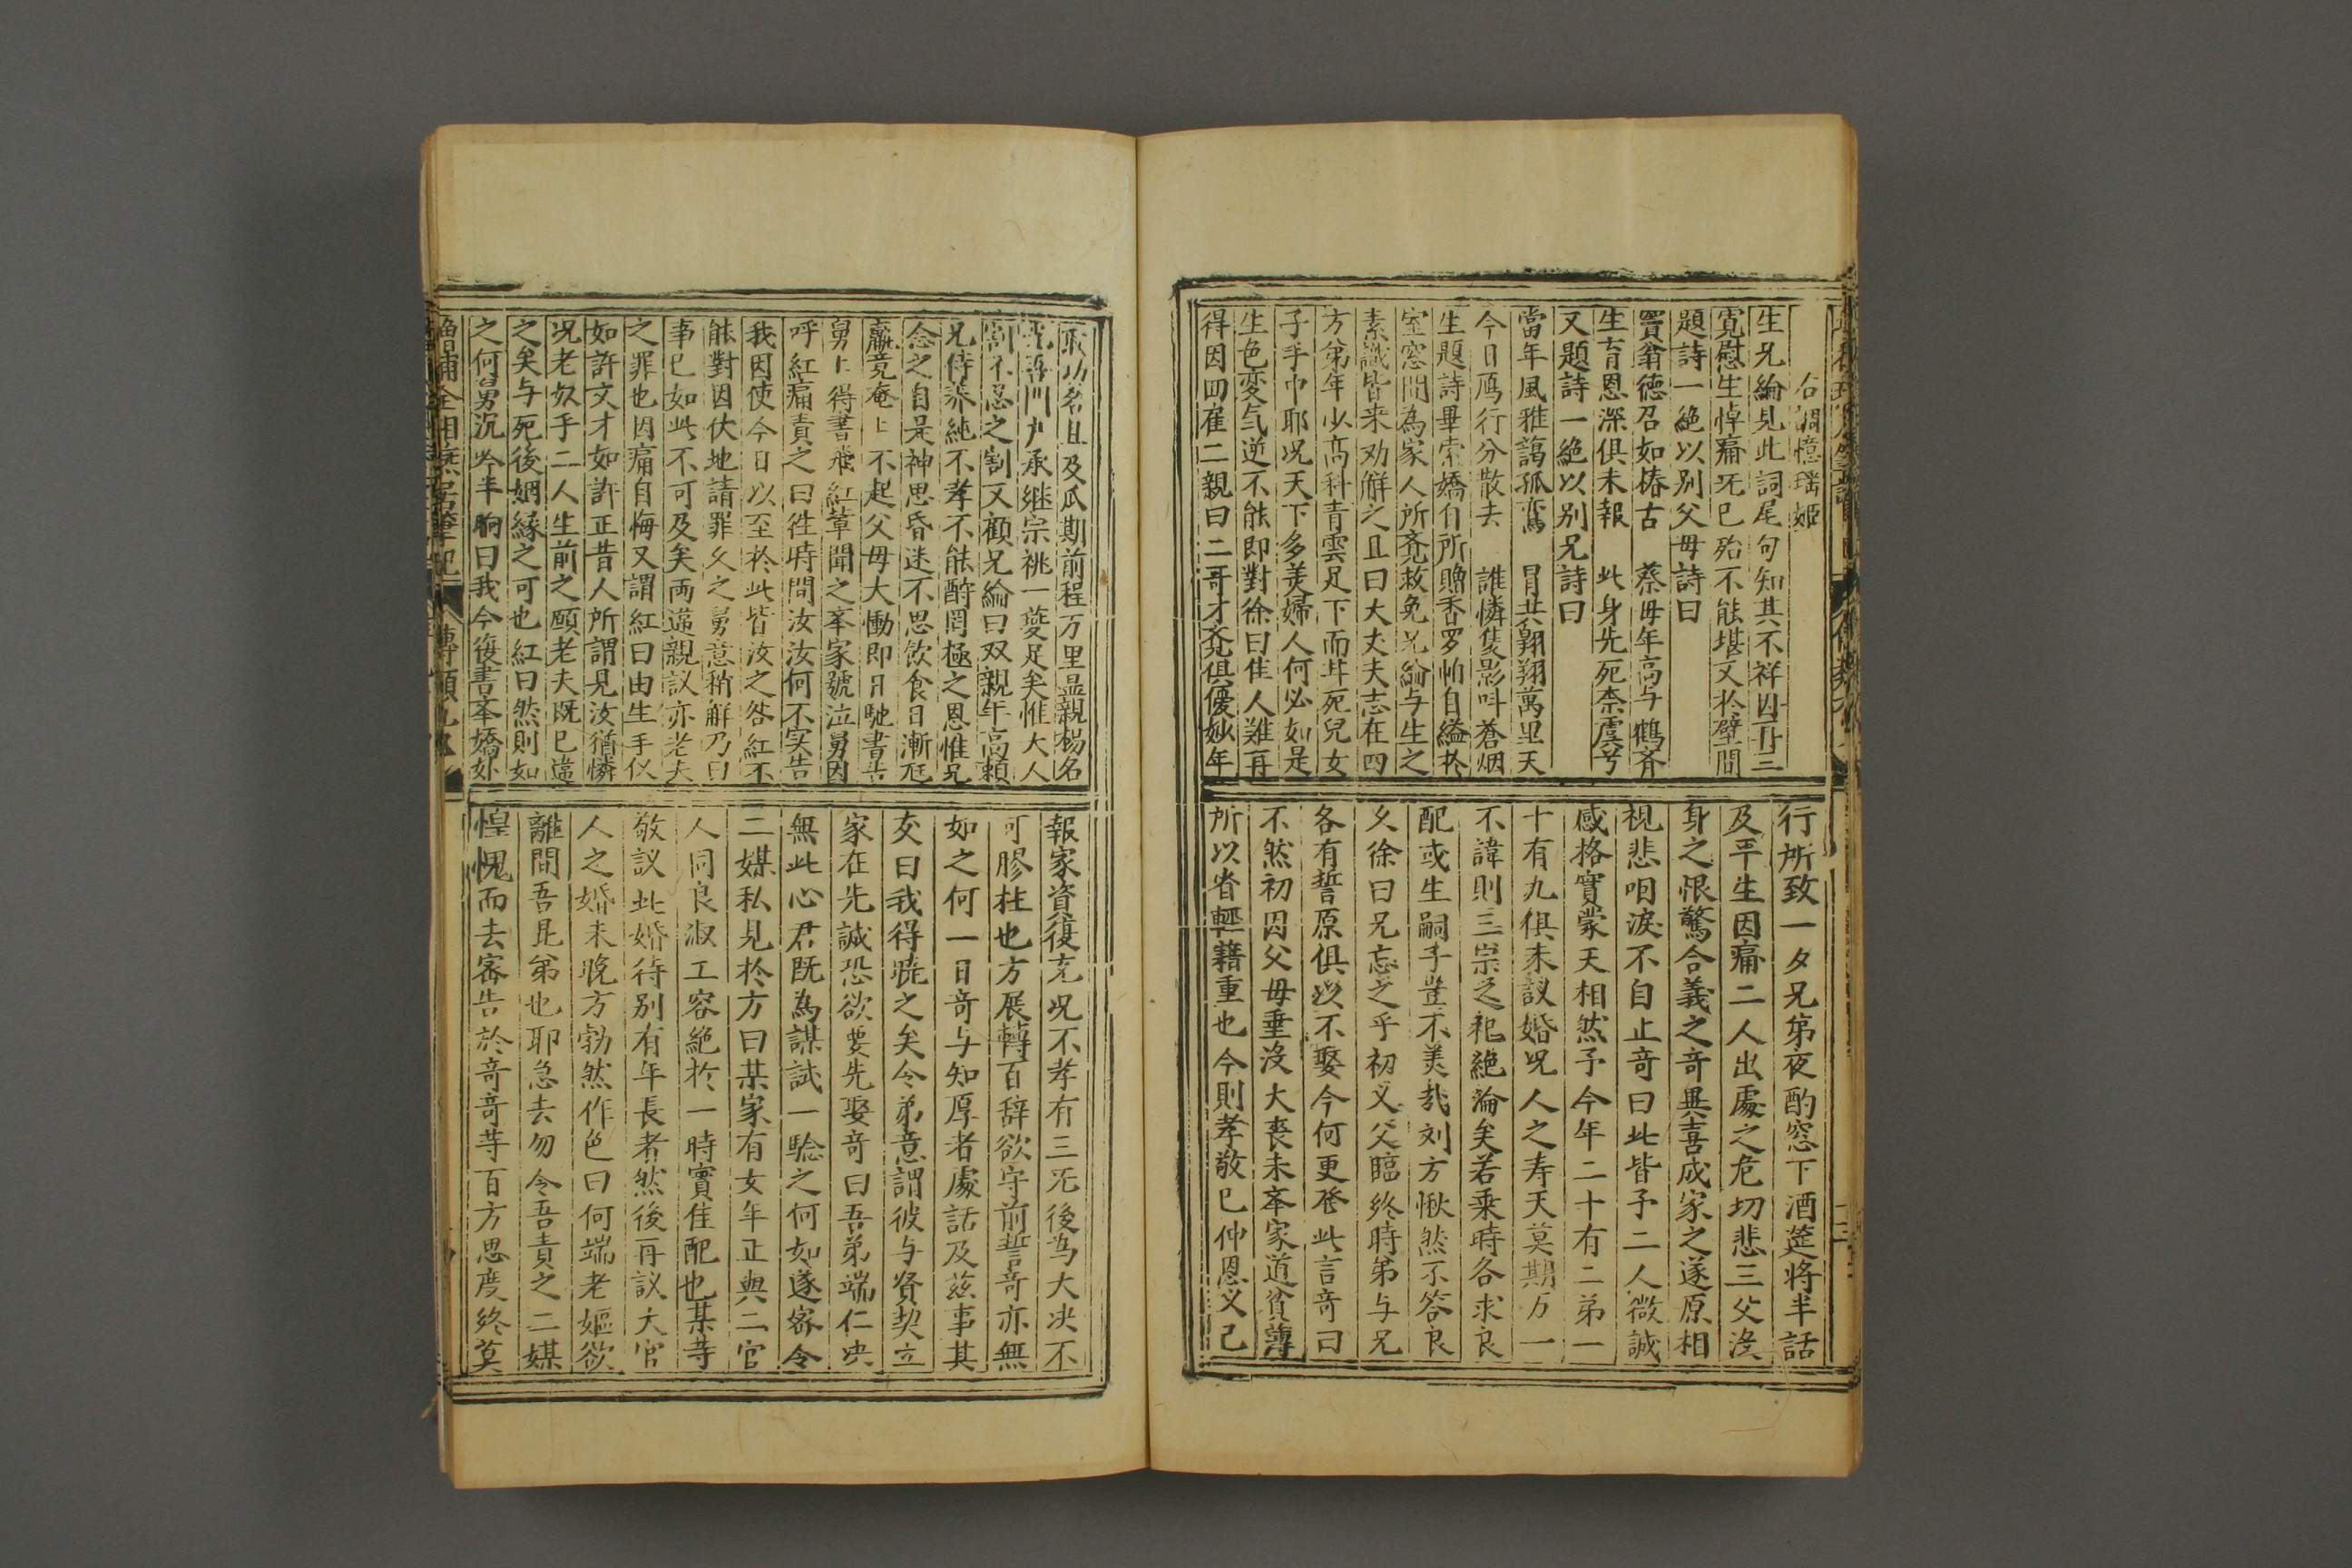 右調憶瑤姬
生兄綸見此詞尾句知其不祥因再三
寬慰生悼痛死已殆不能堪又於壁間
題詩一絶以别父母詩曰
竇翁德召如椿古　蔡母年高与鶴齊
生育恩深俱未報　此身先死柰虞兮
又題詩一絶以别兄詩曰
當年風雅藹孤鸞　冐共翺翔萬里天
今日鴈行分散去　誰憐隻影呌蒼烟
生題詩畢索嬌有所贈香罗帕自縊於
室窓間為家人所竟救免兄綸与生之
素識皆来劝解之且曰大丈夫志在四
方弟年少高科青雲足下而甘死兒女
子手巾耶况天下多美婦人何必如是
生色変气逆不能即對徐曰隹人難再
得因囬雇二親曰二哥才竒俱優妙年
行所致一夕兄第夜酌窓下酒筵将半話
及平生因痛二人出處之危切悲三父没
身之恨驚合義之竒異喜成家之遂原相
視悲咱淚不自止竒曰此皆予二人微誠
感格實蒙天相然予今年二十有二弟一
十有九俱未議婚况人之寿夭莫期万一
不諱則三宗之祀絶淪矣若乗時各求良
配或生嗣子豈不美哉刘方愀然不答良
久徐曰兄忘之乎初义父臨終時弟与兄
各有誓原俱以不娶今何更発此言竒曰
不然初因父母垂没大喪未夲家道貧薄
所以省輕藉重也今則孝敬已仲恩义己
取功名且及瓜期前程万里显親楊名
光吾門户承継宗祧一夔足矣惟大人
割不忍之割又顧兄綸曰双親年高頼
兄侍养純不孝不能酧罔極之恩惟兄
念之自是神思昏迷不思飲食日漸尫
羸竟奄上不起父母大慟即日馳書告
舅上得書飛紅葷聞之夲家號泣舅因
呼紅痛責之曰徃時問汝汝何不实告
我因使今日以至於此皆汝之咎紅不
能對因伏地請罪久之舅意稍解乃曰
事已如此不可及矣両違親議亦老夫
之罪也因痛自悔又謂紅曰由生手仪
如許文才如許正昔人所謂見汝猶憐
况老奴乎二人生前之願老夫既已違
之矣与死後姻縁之可也紅曰然則如
之何舅沉吟半晌曰我今復書夲嬌妳
報家資復充况不孝有三死後為大决不
可膠柱也方展轉百辞欲守前誓竒亦無
如之何一日竒与知厚者處話及茲事其
友曰我得曉之矣今弟意謂彼与賢契立
家在先誠恐欲要先娶竒曰吾弟端仁决
無此心君既為謀試一騐之何如遂密令
二媒私見於方曰某家有女年正與二官
人同良淑工容絶於一時實隹配也某等
敬議此婚待别有年長者然後再議大官
人之婚未晚方勃然作色曰何端老嫗欲
離間吾昆弟也耶急去勿令吾責之二媒
惶愧而去密告於竒竒等百方思度終莫